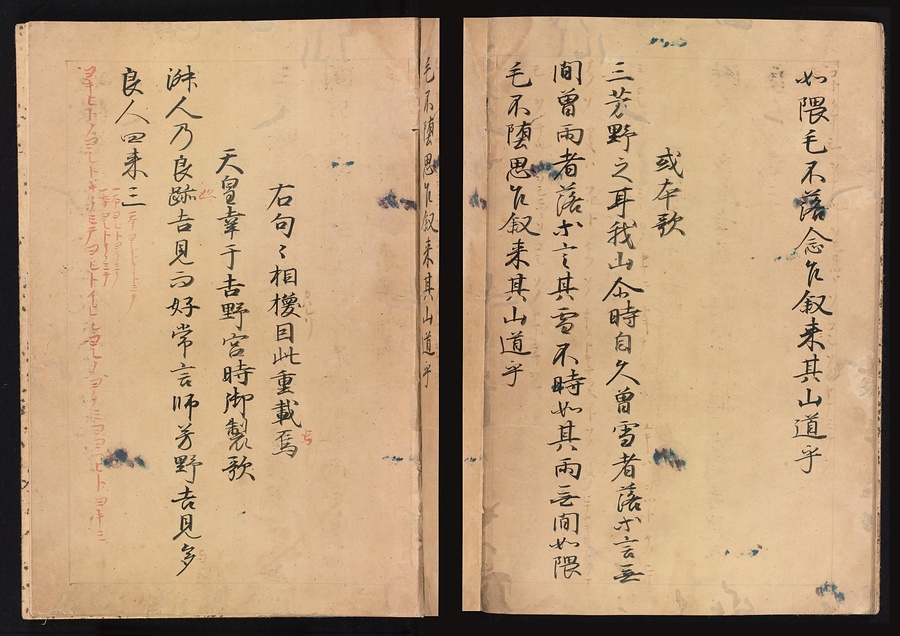 如隈毛不落念乍叙来其山道乎
或本歌
三芳野之耳我山尒時自久曽雪者落等言無
間曽雨者落等言其雪不時如其雨無間如隈
毛不堕思乍叙来其山道乎
毛不堕思乍叙来其山道乎
右句〻相換因此重載焉
天皇幸于吉野宮時御製歌
淑人乃良跡吉見而好常言師芳野吉見多
良人四来三